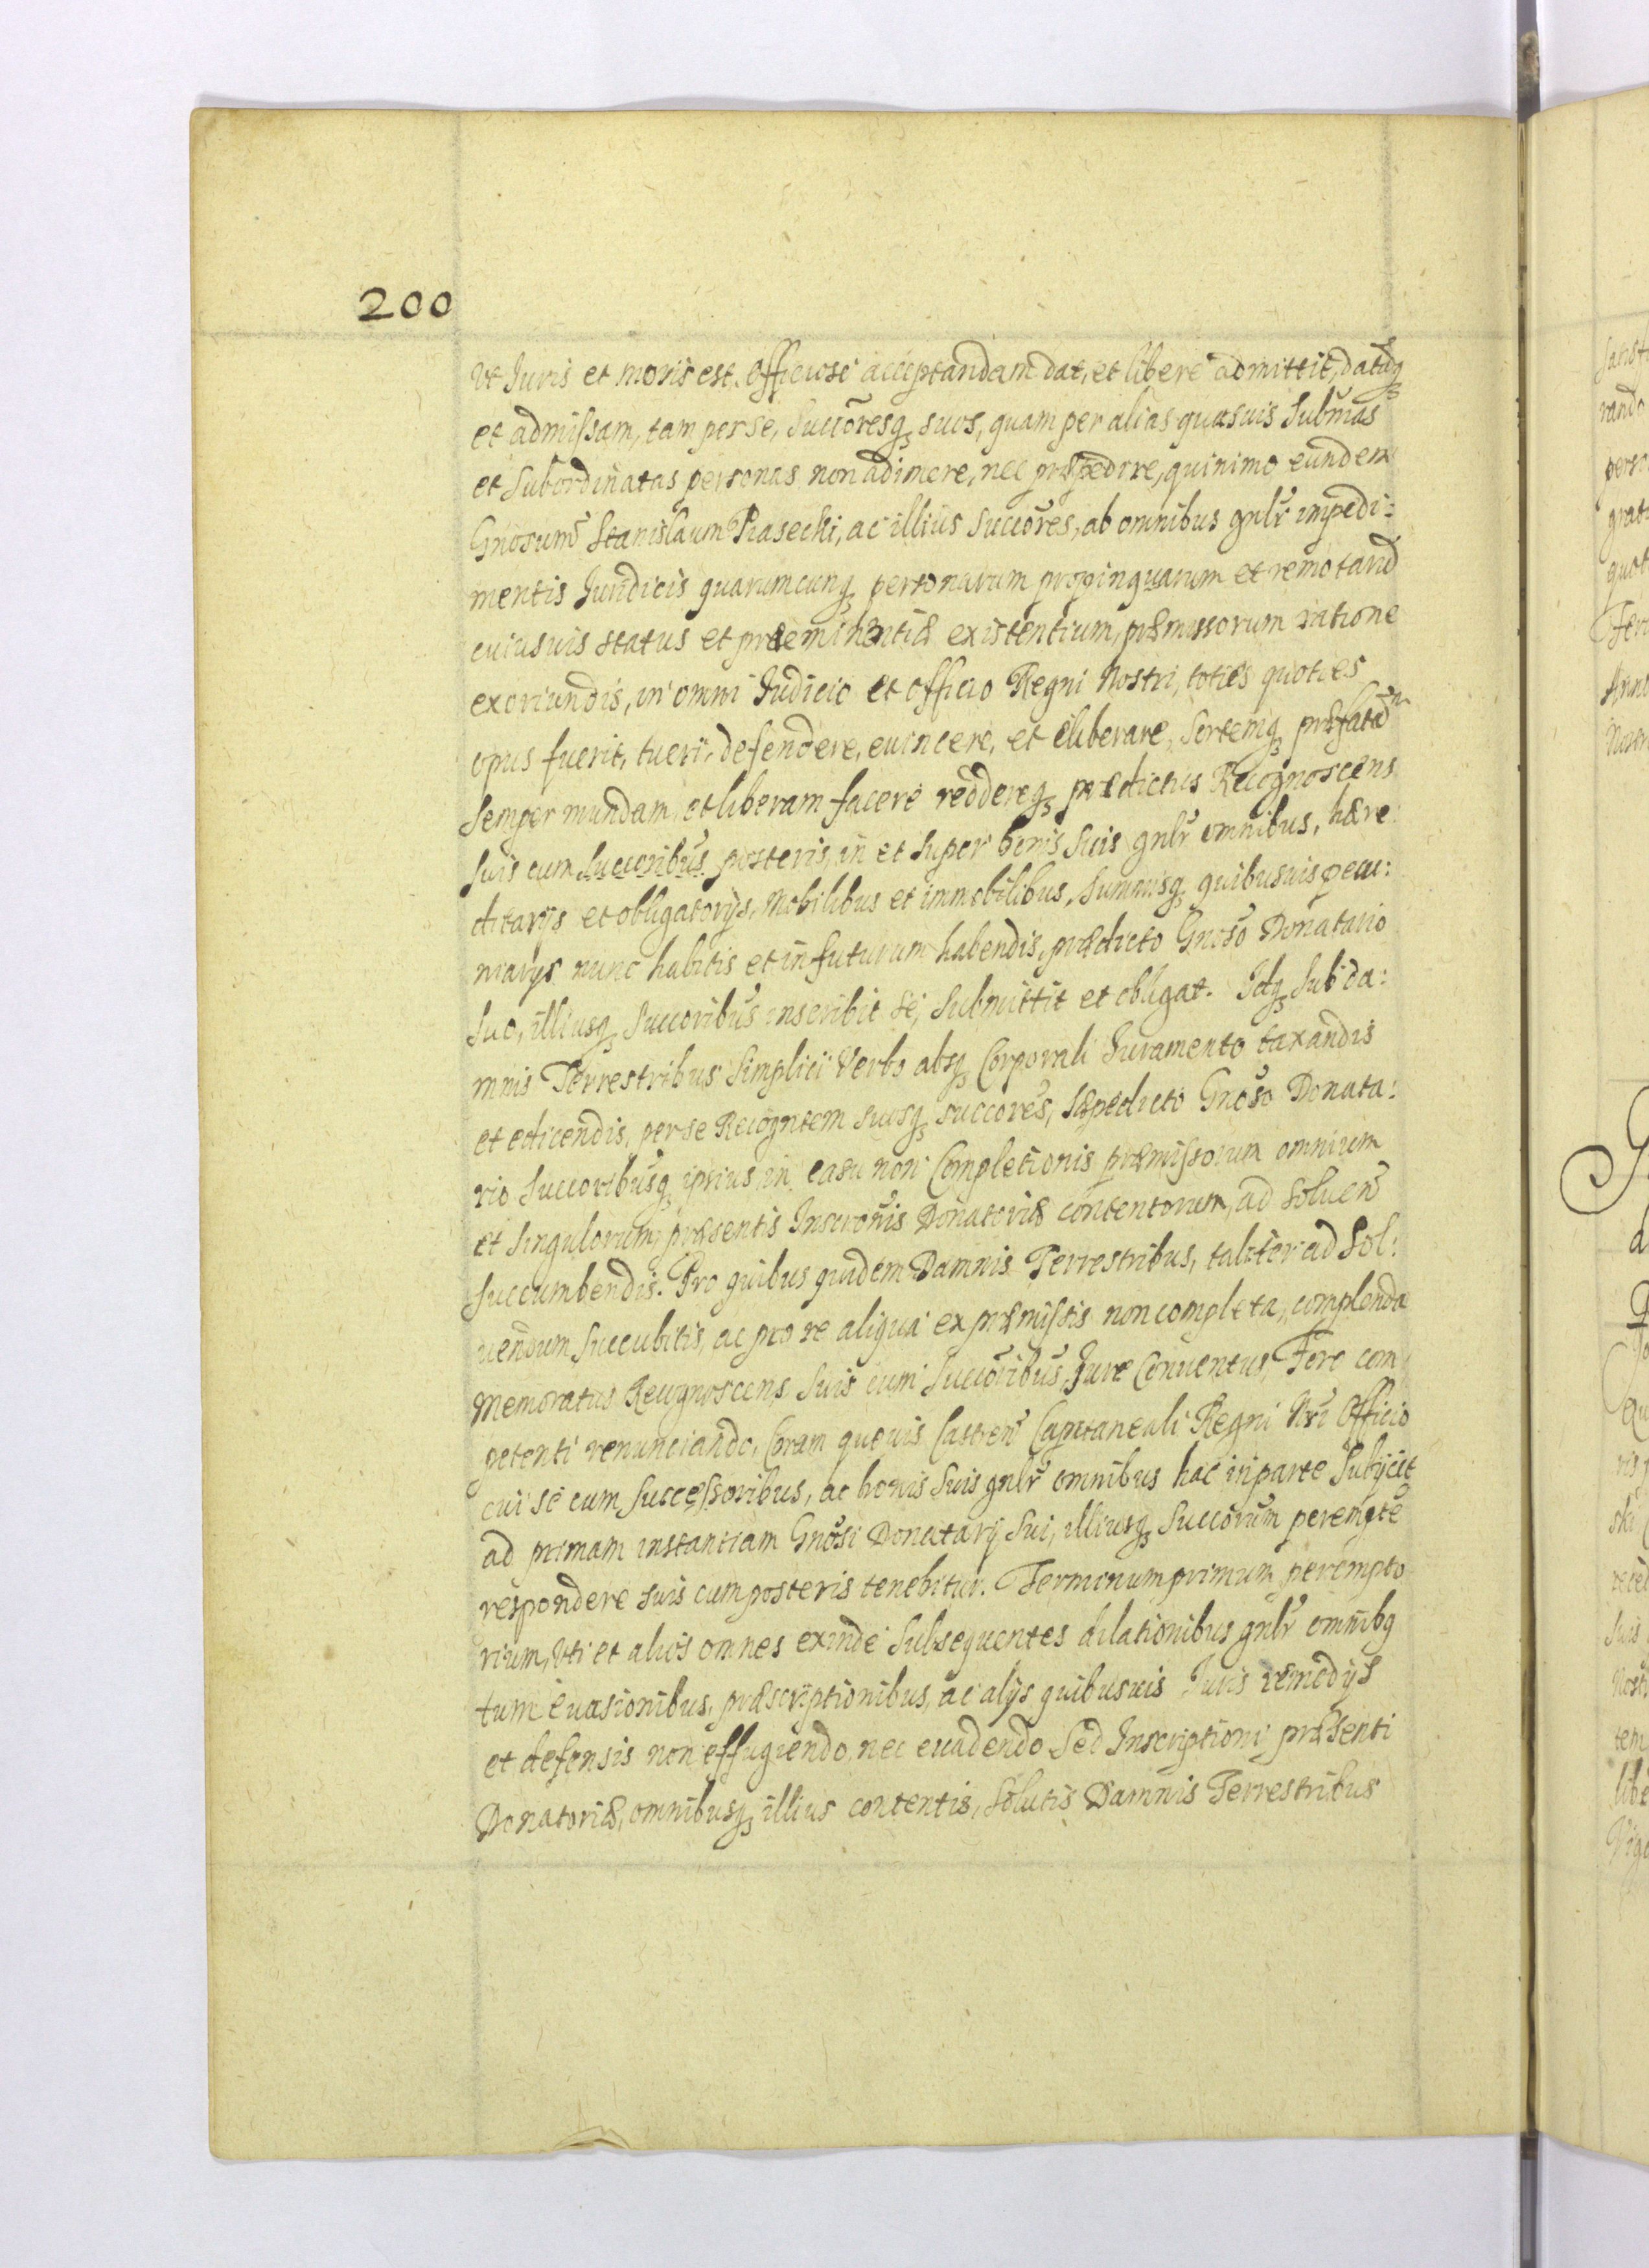 200
Vt Juris et moris est. Officiose acceptandam dat, et libere admittit, datāq
et admissam, tam per se, Succōresq suos, quam per alias quasuis Subm̄as
et Subordinatas personas non adimere, nec præpedire, quinimo eundem
Gnosum̄ Stanislaum Piasecki, ac illius Succōres, ab omnibus gnlr̄ impedi:
mentis Juridicis quarumcunq personarum propinquarum et remotarū
cuiusuis status et præeminentiæ existentium, præmissorum ratione
exoriundis, in omni Judicio et officio Regni Nostri, toties quoties
opus fuerit, tueri, defendere, euincere, et eliberare, Sortemq præfatam
Semper mundam, et liberam facere reddereq prædictus Recognoscens
Suis cum Succoribus posteris, in et super bonis Suis gnlr̄ omnibus, hære
ditarijs et obligatorijs, Mobilibus et immobilibus, Summisq quibusuis pecu:
niarys nunc habitis et in futurum habendis, prædicto Gnōso Donatario
Suo, illiusq Succoribus inscribit se, Submittit et obligat. Idq Sub da:
mnis Terrestribus Simplici Verbo absq Corporali Juramento taxandis
et edicendis, per se Recogntem suosq succores, Sæpedicto Gnōso Donata:
rio Succoribusq ipsius, in casu non Completionis præmissorum omnium
et Singulorum, præsentis Inscrōnis Donatoriæ contentorum, ad Soluen̄
Succumbendis. Pro quibus quidem Damnis Terrestribus, taliter ad Sol:
uendum Succubitis, ac pro re aliqua ex præmissis non completa, complenda
Memoratus Recognoscens Suis cum Succōribus, Jure Conuentus, Foro com
petenti renunciando, Coram quouis Castren̄ Capitaneali Regni Nr̄i Officio
cui se cum Successoribus, ac bonis Suis gnlr̄ omnibus hac in parte Subijcit
ad primam instantiam Gnōsi Donatarij Sui, illiusq Succōrum perempte
respondere suis cum posteris tenebitur. Terminum primum perempto
rium, Vti et alios omnes exinde Subsequentes dilationibus gnlr̄ omnibq
tum euasionibus, præscriptionibus, ac alijs quibusuis Juris remedijs
et defensis non effugiendo, nec euadendo Sed Inscriptioni præsenti
Donatoriæ, omnibusq illius contentis, Solutis Damnis Terrestribus